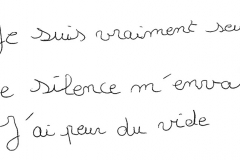 Je suis vraiment seu
e silence m'enva
J'ai peur du vide